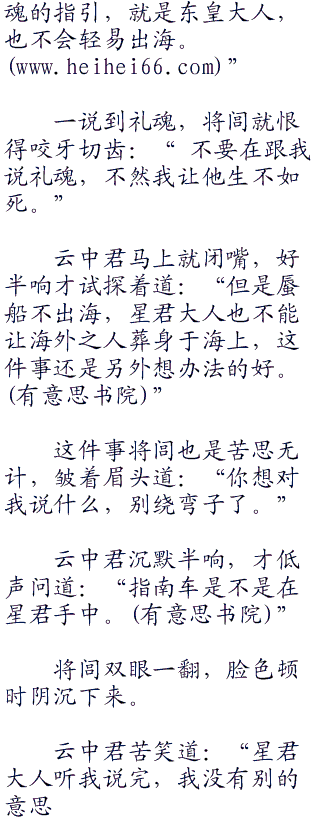 魂的指引，就是东皇大人，
也不会轻易出海。
(www.heihei66.com)”
一说到礼魂，将闾就恨
得咬牙切齿：“ 不要在跟我
说礼魂，不然我让他生不如
死。”
云中君马上就闭嘴，好
半响才试探着道：“但是蜃
船不出海，星君大人也不能
让海外之人葬身于海上，这
件事还是另外想办法的好。
(有意思书院)”
这件事将闾也是苦思无
计，皱着眉头道：“你想对
我说什么，别绕弯子了。”
云中君沉默半响，才低
声问道：“指南车是不是在
星君手中。(有意思书院)”
将闾双眼一翻，脸色顿
时阴沉下来。
云中君苦笑道：“星君
大人听我说完，我没有别的
意思